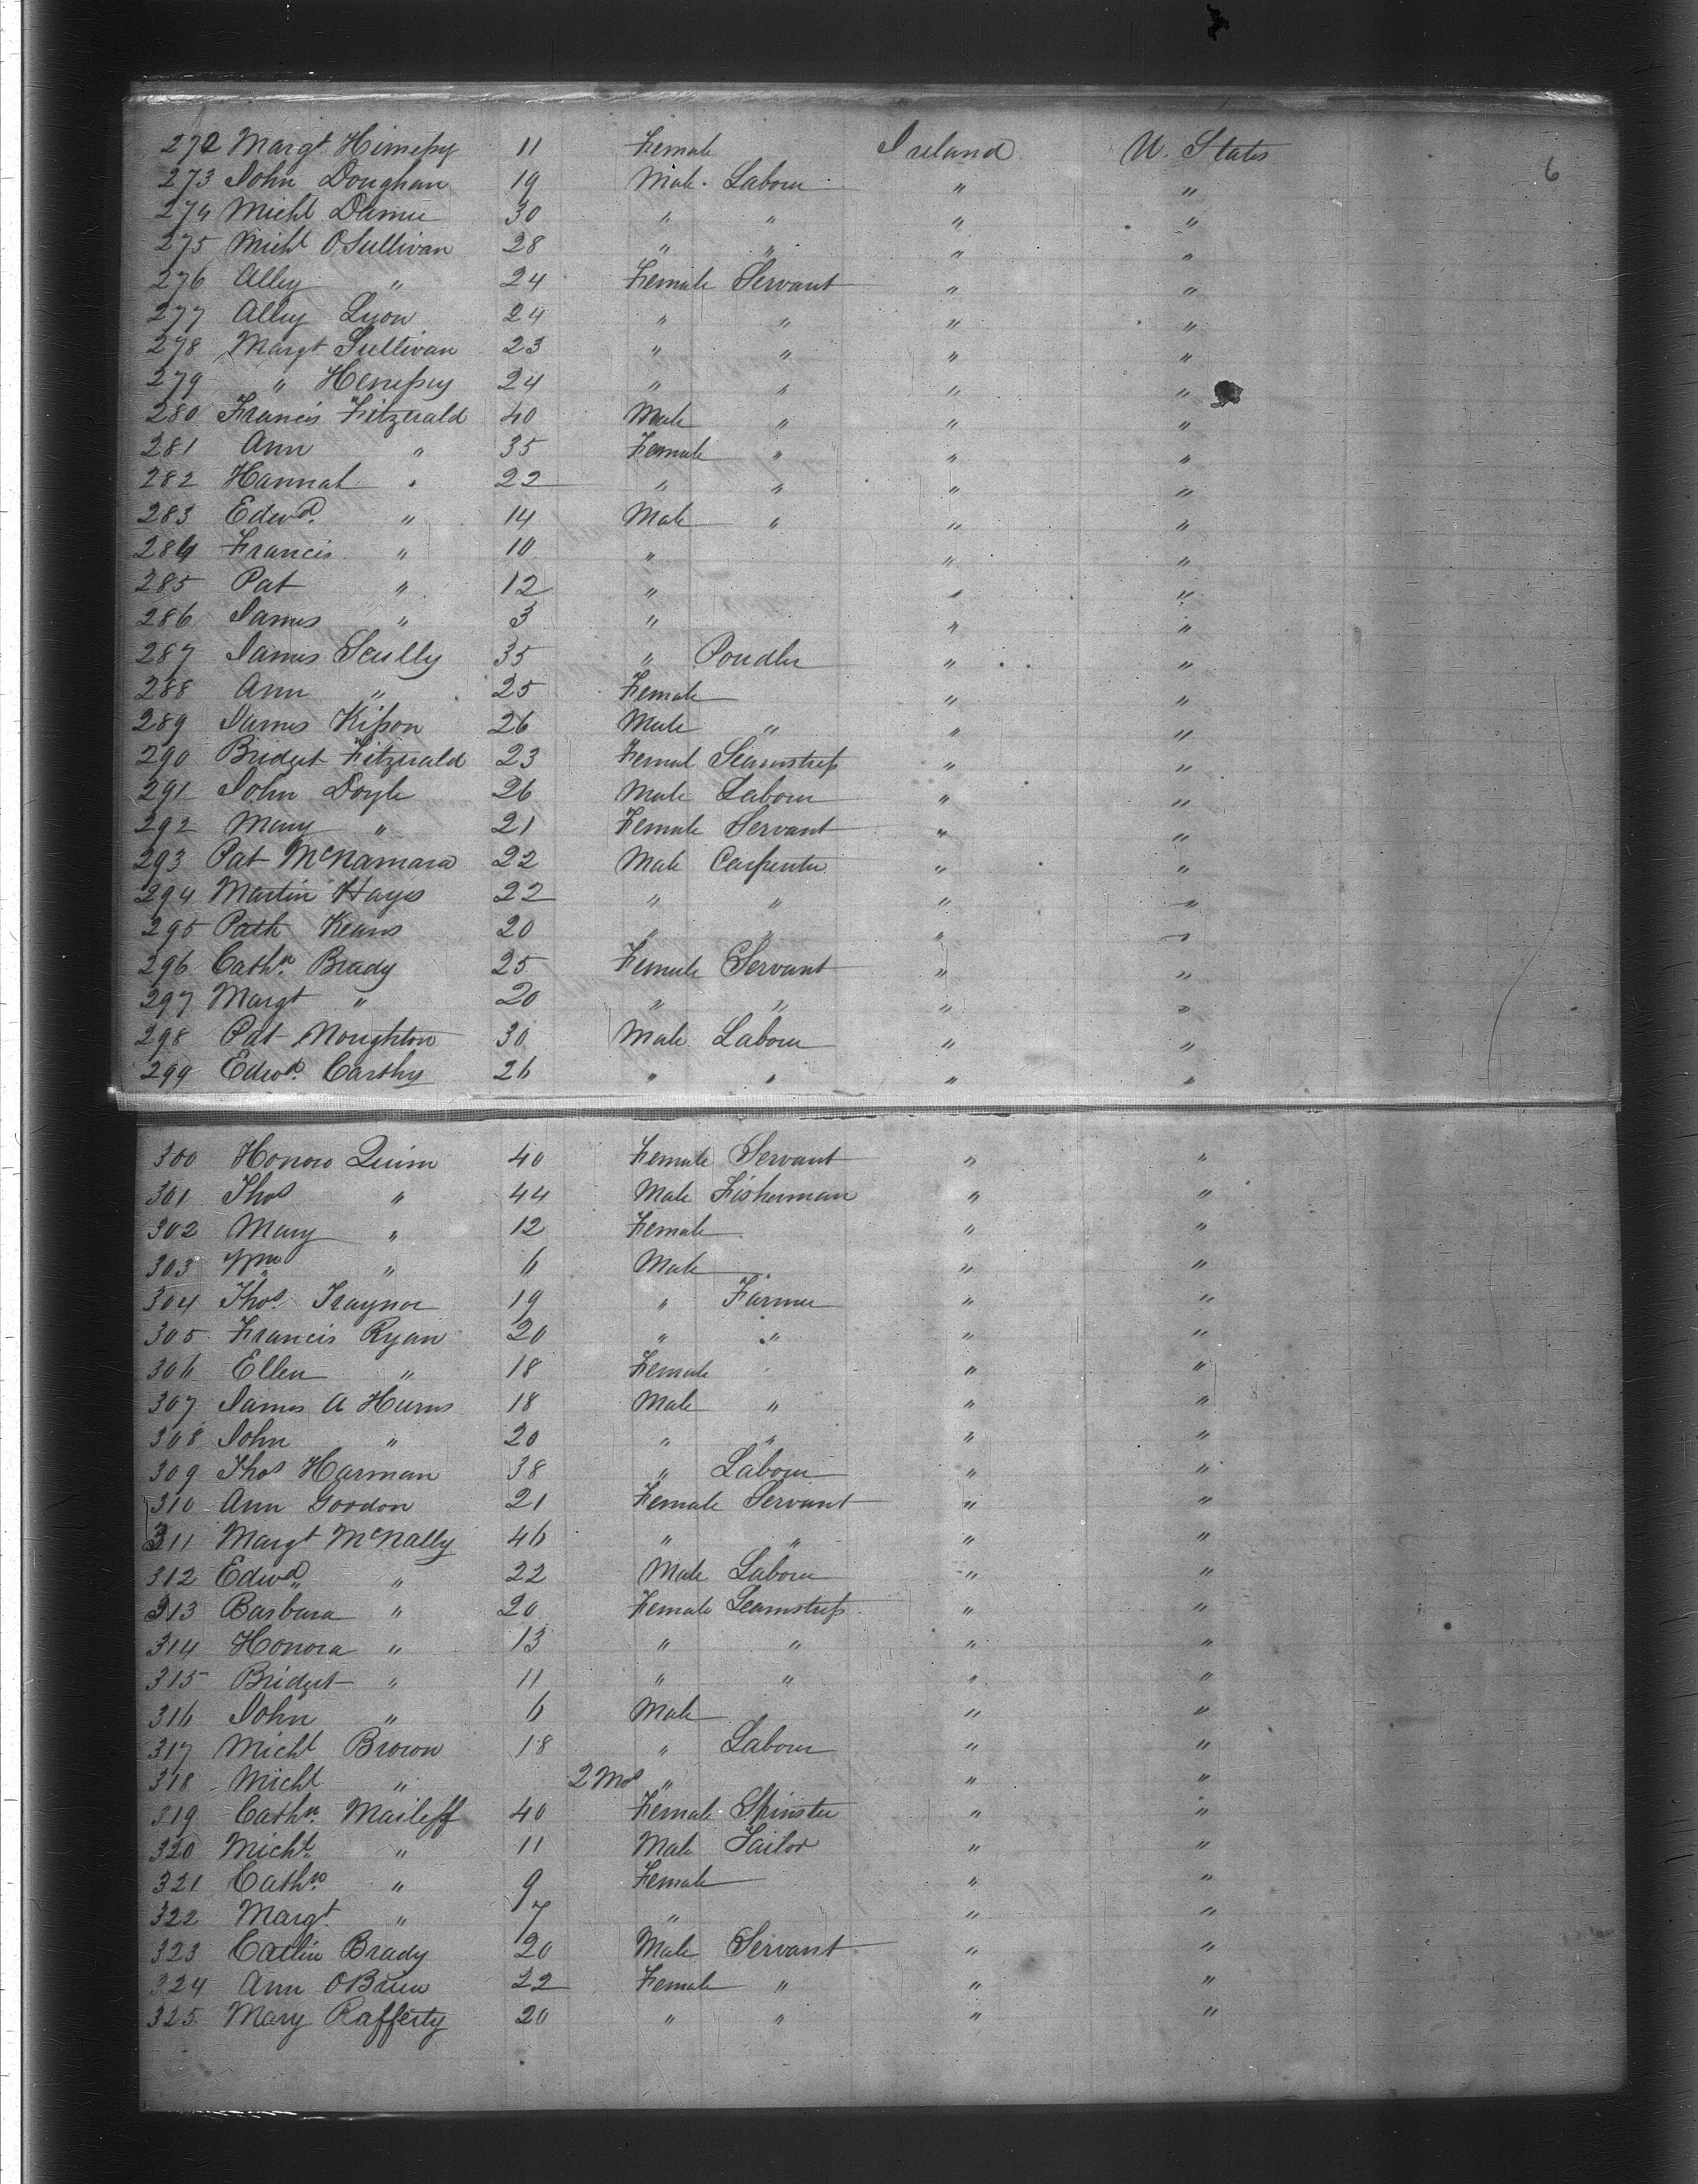 6
272 Margt Himepsy 11 Female Ireland U. States
273 John Doughan 19 Male Labour " "
274 Michl 30 " " " "
275 Michl O'Sullivan 28 " " " "
276 Alley " 24 Female Servant " "
277 Alley Lyon 24 " " " "
278 Margt Sullivan 23 " " " "
279 " Henepsy 24 " " " "
280 Francis Fitzerald 40 Male " " "
281 Ann " 35 Female " " "
282 Hannah " 22 " " " "
283 Edwd. " 14 Male " " "
284 Francis " 10 " " "
285 Pat " 12 " " "
286 James " 3 " " "
287 James Scully 35 " " "
288 Ann " 25 Female " "
289 James Kisson 26 Male " " "
290 Bridget Fitzerald 23 Female Seamstress " "
291 John Doyle 26 Male Labour " "
292 Mary " 21 Female Servant " "
293 Pat McNamara 22 Male Carpenter " "
294 Martin Hays 22 " " " "
295 Patk Kearns 20 " " " "
296 Cathn. Brady 25 Female Servant " "
297 Margt " 20 " " " "
298 Pat Noughton 30 Male Labour " "
299 Edwd. Carthy 26 " " " "
300 Honora Quinn 40 Female Servant " "
301 Thos " 44 Male Fisherman " "
302 Mary " 12 Female " "
303 Wm " 6 Male " "
304 Thos. Traynor 19 " Farmer " "
305 Francis Ryan 20 " " " "
306 Ellen " 18 Female " "
307 James A Hurns 18 Male " " "
308 John " 20 " " " "
309 Thos Harman 38 " Labour " "
310 Ann Gordon 21 Female Servant " "
311 Margt McNally 46 " " " "
312 Edwd " 22 Male Labour " "
313 Barbara " 20 Female Seamstress " "
314 Honora " 13 " " " "
315 Bridget " 11 " " " "
316 John " 6 Male " "
317 Michl Brown 18 " Labour " "
318 Michl " 2 Mos " " "
319 Cathn. Maileff 40 Female Spinster " "
320 Michl. " 11 Male Tailor " "
321 Cathn. " 9 Female " "
322 Margt. " 7 " " "
323 Cathn Brady 20 Male Servant " "
324 Ann OBrien 22 Female " " "
325 Mary Rafferty 20 " " " "